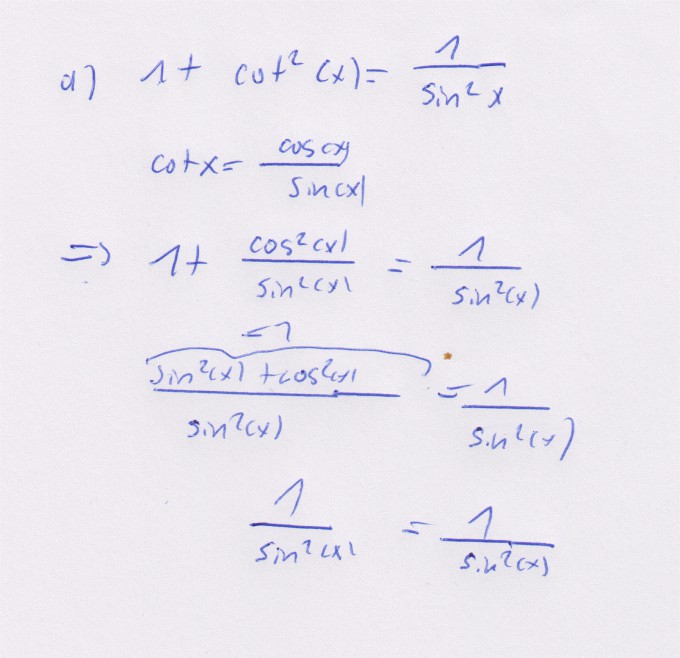 a) 1 + cot² (x) = 1 / sin² x
cot x = cos(x) / sin(x)
=> 1 + cos²(x) / sin²(x) = 1 / sin²(x)
= 1
sin²(x) + cos²(x) / sin²(x) = 1 / sin²(x)
1 / sin²(x) = 1 / sin²(x)